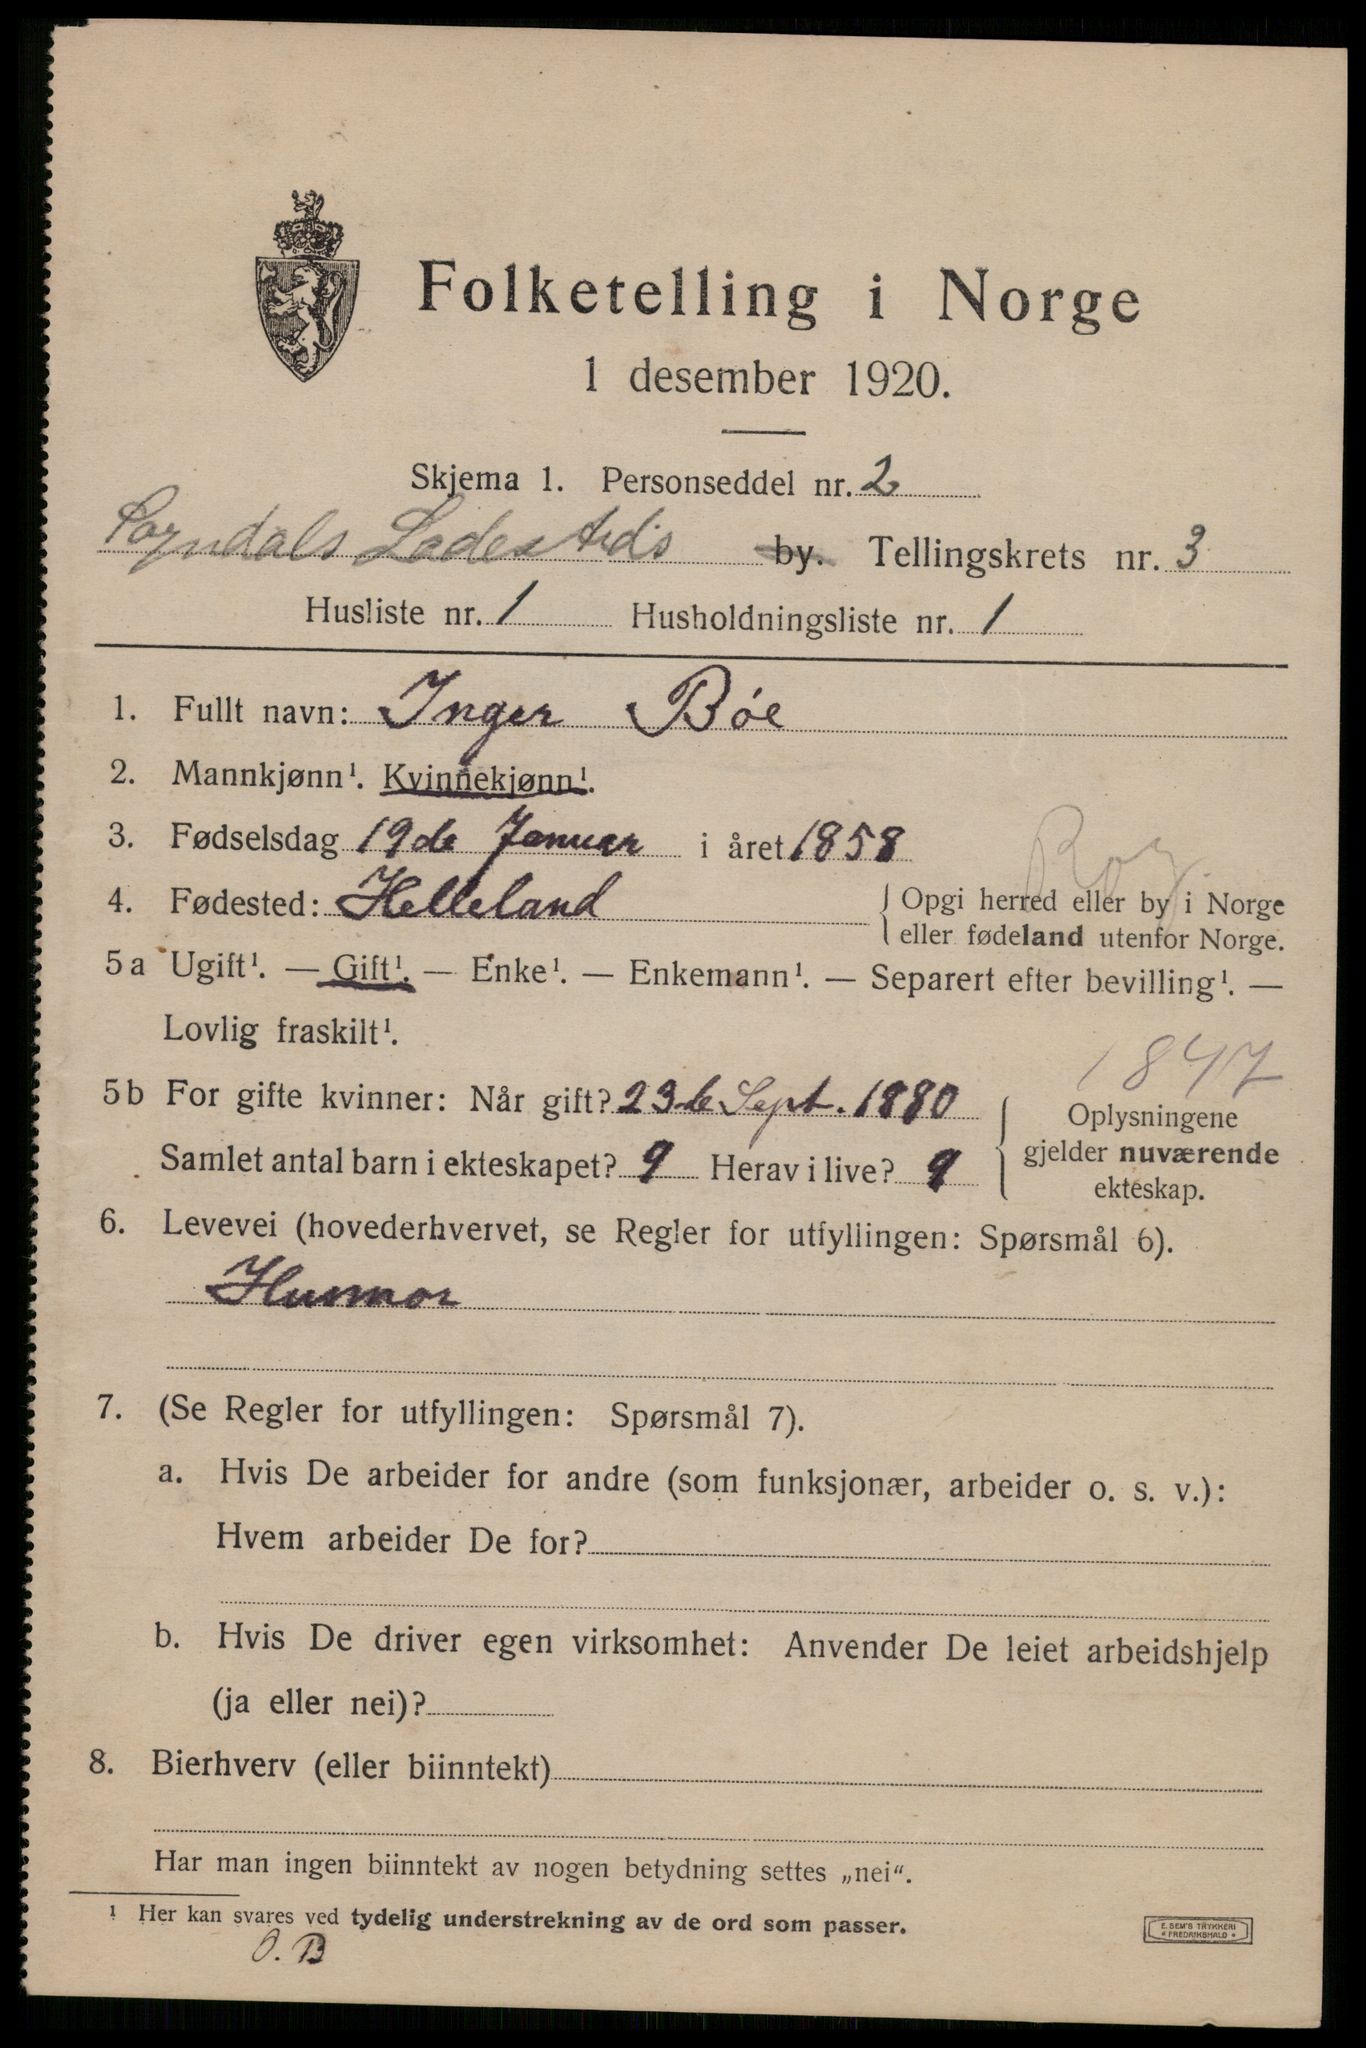 Folketelling i Norge
1 desember 1920.
Skjema 1. Personseddel nr. 2
Sogndals Ladesteds by. Tellingskrets nr. 3
Husliste nr. 1 Husholdningsliste nr. 1
1. Fullt navn: Inger Bóe
2. Mannkjønn¹. Kvinnekjønn¹.
3. Fødselsdag 19de Januar i året 1858
4. Fødested: Helleland { Opgi herred eller by i Norge
eller fødeland utenfor Norge.
Rog.
5a Ugift¹. — Gift¹. — Enke¹. — Enkemann¹. — Separert efter bevilling¹. —
Lovlig fraskilt¹.
1847
5b For gifte kvinner: Når gift? 23de Sept. 1880
Samlet antal barn i ekteskapet? 9 Herav i live? 9
{ Oplysningene
gjelder nuværende
ekteskap.
6. Levevei (hovederhvervet, se Regler for utfyllingen: Spørsmål 6).
Husmor
7. (Se Regler for utfyllingen: Spørsmål 7).
a. Hvis De arbeider for andre (som funksjonær, arbeider o. s. v.):
Hvem arbeider De for?
b. Hvis De driver egen virksomhet: Anvender De leiet arbeidshjelp
(ja eller nei)?
8. Bierhverv (eller biinntekt)
Har man ingen biinntekt av nogen betydning settes „nei“.
¹ Her kan svares ved tydelig understrekning av de ord som passer.
O. B
E. SEM'S TRYKKERI
* FREDRIKSHALD *